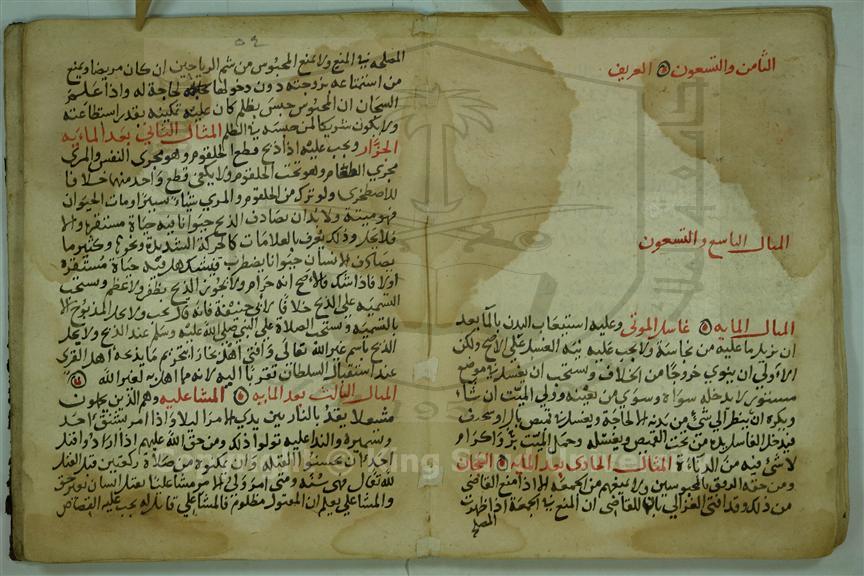 الثامن والتسعون العريف
المثال التاسع والتسعون
المثال المايه غاسل الموتى وعليه استيعاب البدن بالما بعد
ان يزيل ما عليه من نجاسة ولا يجب عليه نية الغسل على الاصح ولكن
الاولى ان ينوي خروجا من الخلاف ويستحب ان يغسله في موضع
مستور لا يدخله سواه وسوى من يعينه وولي الميت ان شاء
ويكره ان ينظر الى شي من بدنه الا لحاجة ويغسله في قميص بال او سخيف
فيدخل الغاسل يده من تحت القميص ويغسله وحمل الميت بر واكرام
لا شي فيه من الدناة المثال الحادي بعد المايه السجان
ومن حقه الرفق بالمحبوسين ولا يمنعهم من الجمعة الا اذا منع القاضي
من ذلك وقد افتى الغزالي بان للقاضي ان المنع من الجمعة اذا ظهرت
المصلحة
٥٩
المصلحه في المنع ولا يمنع المحبوس من شم الرياحين ان كان مريضا ويمنع
من استمتاعه بزوجته دون دخولها لحاجة له واذا علم
السجان ان المحبوس حبس بظلم كان عليه تمكينه بقدر استطاعته
ولا يكون شريكا لمن حبسه في الظلم المثال الثاني بعد المايه
الجزار ويجب عليه اذا ذبح قطع الحلقوم وهو مجرى النفس والمري
مجرى الطعام وهو تحت الحلقوم ولا يكفي قطع واحد منهما خلافا
للاصطخري ولو ترك من الحلقوم والمري شيا يسيرا ومات الحيوان
فهو ميتة ولا بد ان يصادف الذبح حيوانا فيه حياة مستقرة والا
فلا يحل وذلك يعرف بالعلامات كالحركة الشديدة ونحوها وكثيرا ما
يصادف الانسان حيوانا يضطرب فيشك هل فيه حياة مستقرة
اولا فاذا شك فالاصح انه حرام ولا يجوز الذبح بظفر ولا عظم ويستحب
التسمية على الذبح خلافا لابي حنيفة فانه قال يجب ولا يحل المذبوح الا
بالتسمية ويستحب الصلاة على النبي صلى الله عليه وسلم عند الذبح ولا يحل
الذبح باسم غير الله تعالى وافتى اهل بخارا بتحريم ما يذبحه اهل القرى
عند استقبال السلطان تقربا اليه لانه مما اهل به لغير الله
المثال الثالث بعد المايه المشاعليه وهم الذين يحملون
مشعلا يقد بالنار بين يدي الامرا ليلا واذا امر بشنق احد
وتسميره والندا عليه تولوا ذلك ومن حق الله عليهم اذا ارادوا قتل
احد ان يحسنوا القتلة وان يمكنوه من صلاة ركعتين قبل القتل
لله تعالى فهي سنة ومتى امر ولي الامر مشاعليا بقتل انسان بغير حق
والمشاعلي يعلم ان المقتول مظلوم فالمشاعلي قاتل له يجب عليه القصاص